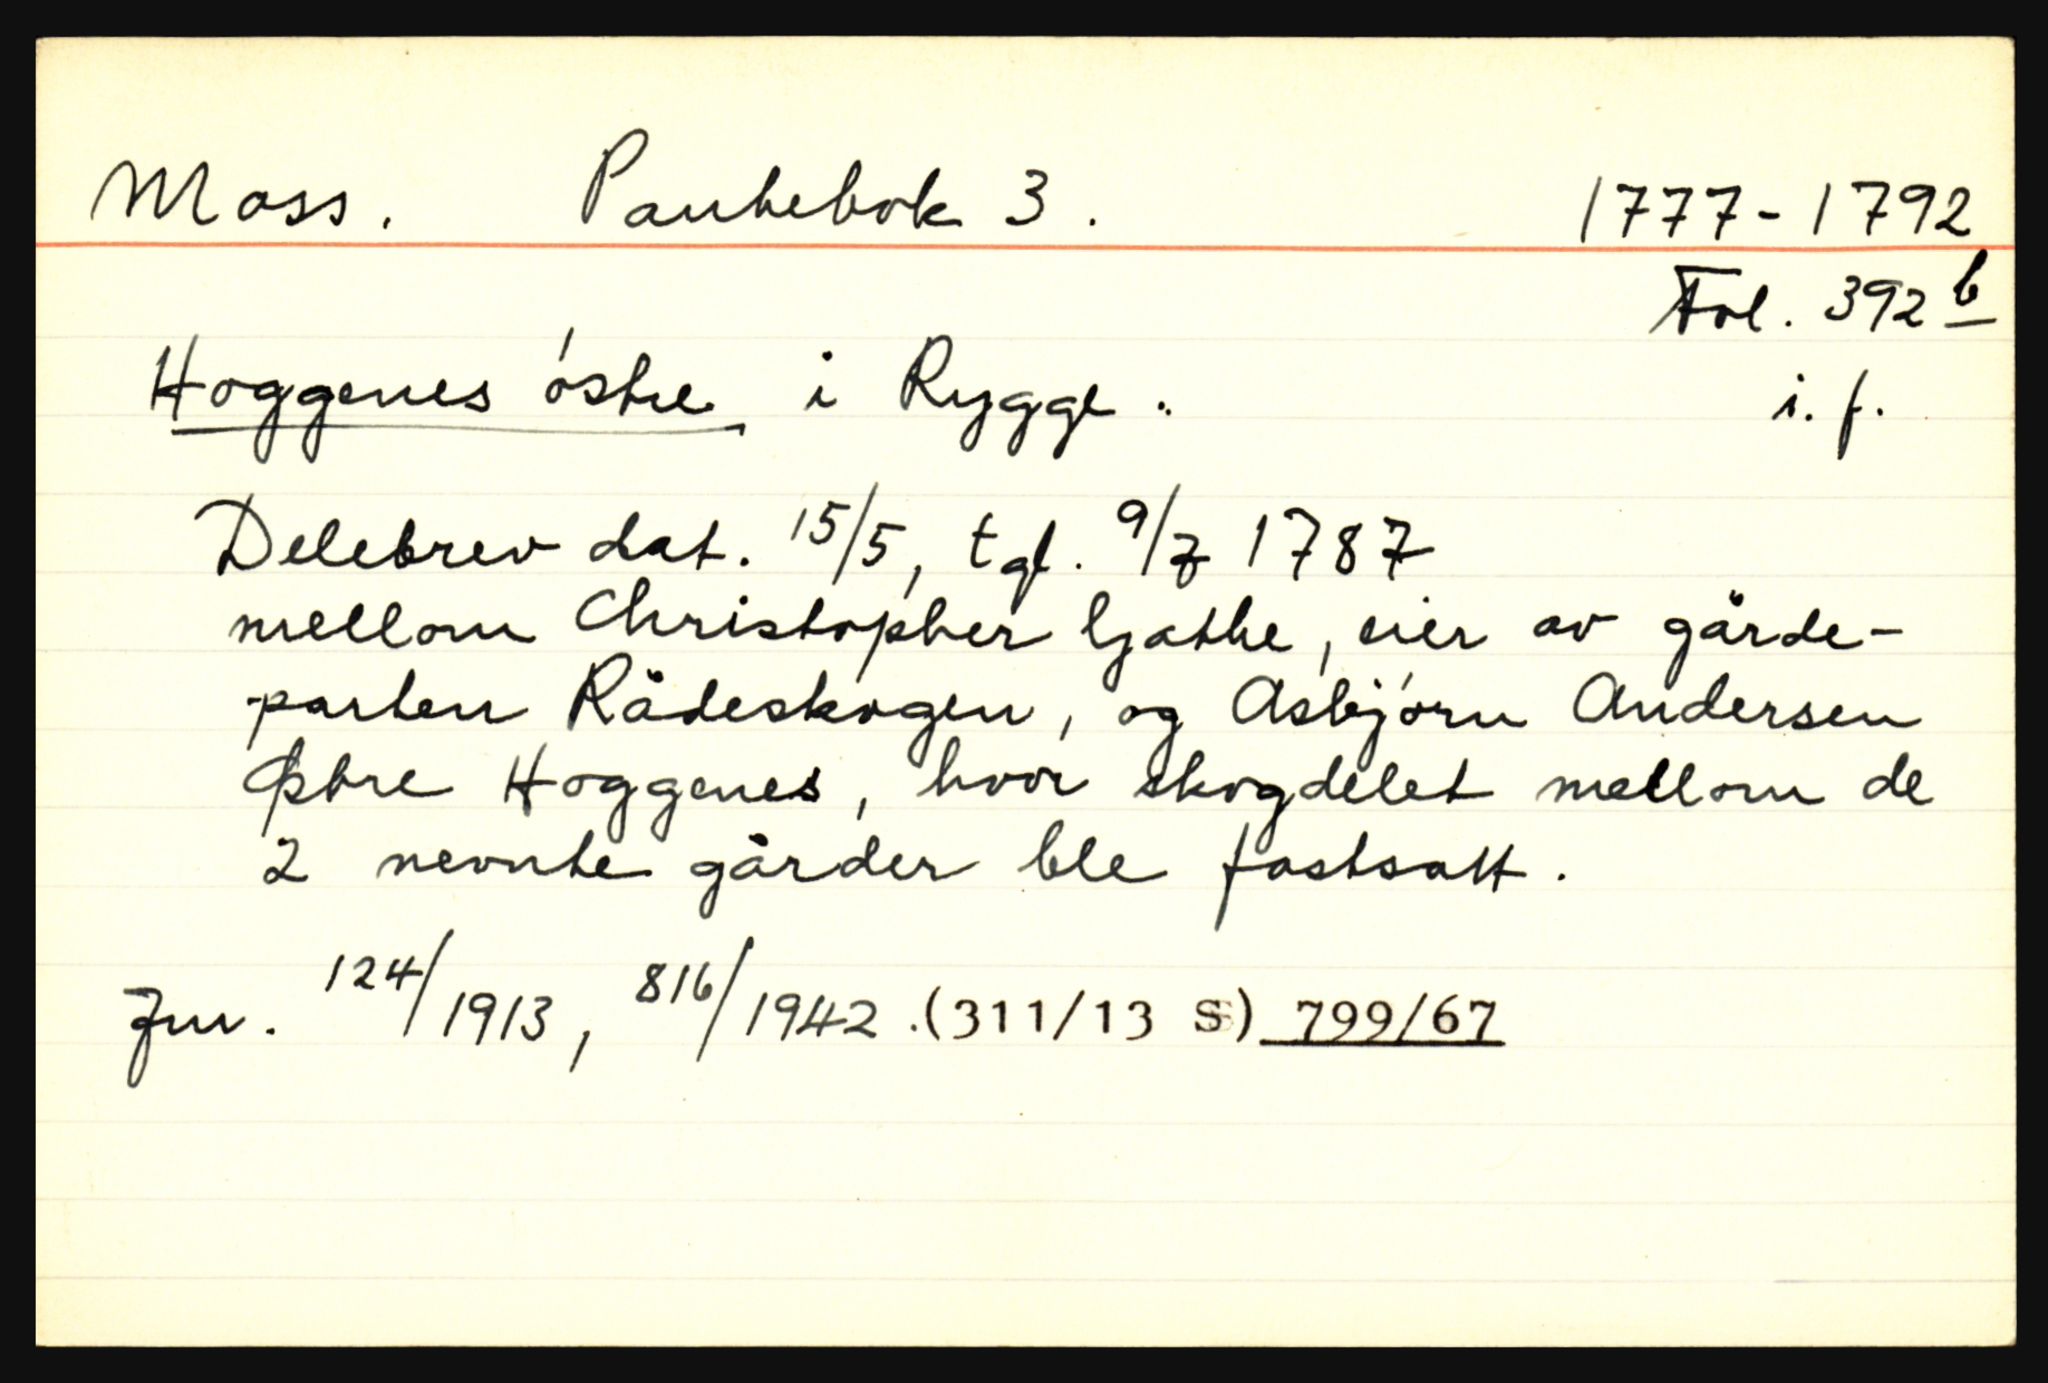 Moss. Pantebok 3. 1777-1792
Fol. 392 b
Hoggenes østre i Rygge. i. f.
Delebrev dat. 15/5, tgl. 9/7 1787
mellom Christopher Gjathe, eier av gårde-
parten Rådeskogen, og Asbjørn Andersen
Østre Hoggenes, hvor skogdelet mellom de
2 nevnte gårder ble fastsatt.
Jnr. 124/1913, 816/1942. (311/13 S) 799/67